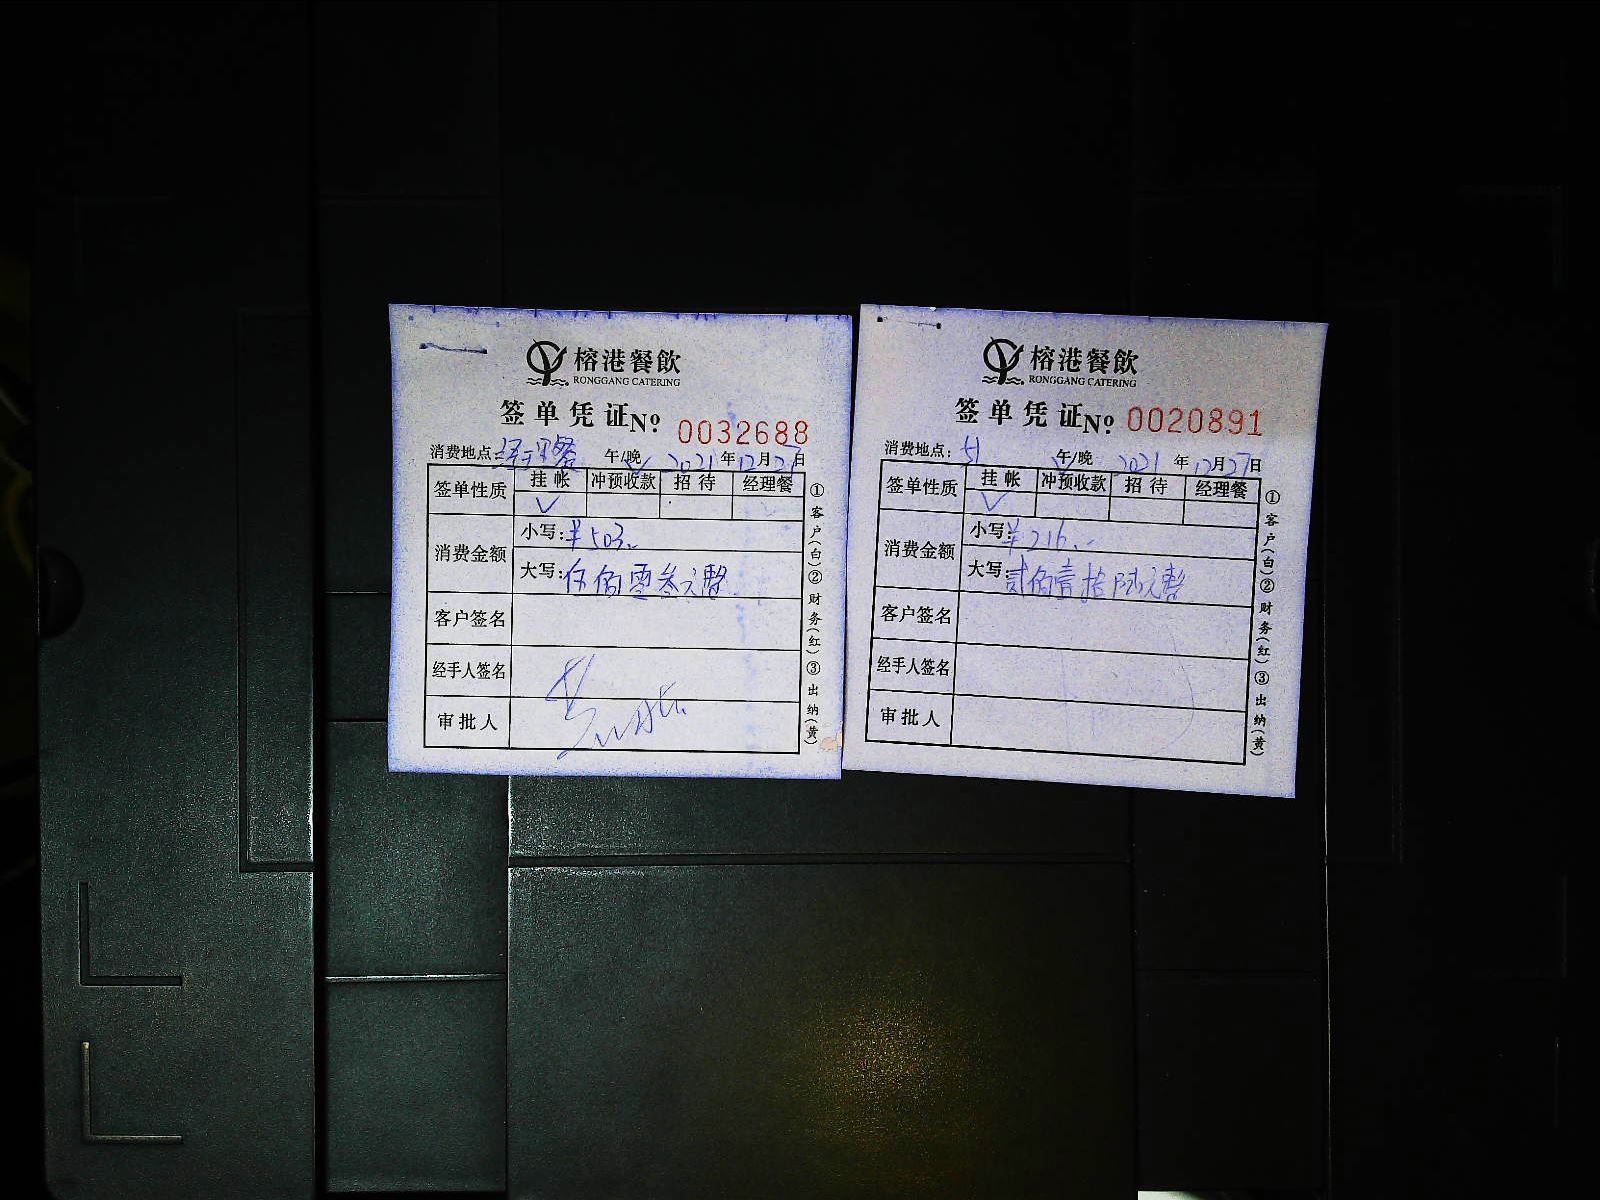 榕港餐飲
RONGGANG CATERING
签单凭证 No: 0032688
消费地点:经理餐 午/晚 2021年12月27日
签单性质 挂帐 冲预收款 招待 经理餐
✓
消费金额 小写:¥503.-
大写:伍佰零叁元整
客户签名
经手人签名
审批人
①客户(白)②财务(红)③出纳(黄)
榕港餐飲
RONGGANG CATERING
签单凭证 No: 0020891
消费地点:51 午/晚 2021年12月27日
签单性质 挂帐 冲预收款 招待 经理餐
✓
消费金额 小写:¥216.-
大写:贰佰壹拾陆元整
客户签名
经手人签名
审批人
①客户(白)②财务(红)③出纳(黄)